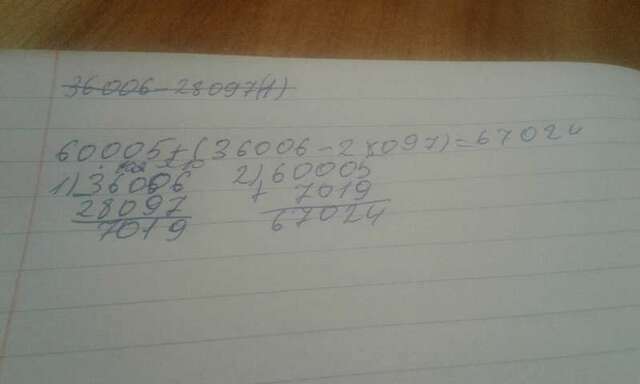 36006-28097(1)
60005+(36006-28097)=67024
1) 36006 2) 60005
28097 + 7019
7019 67024